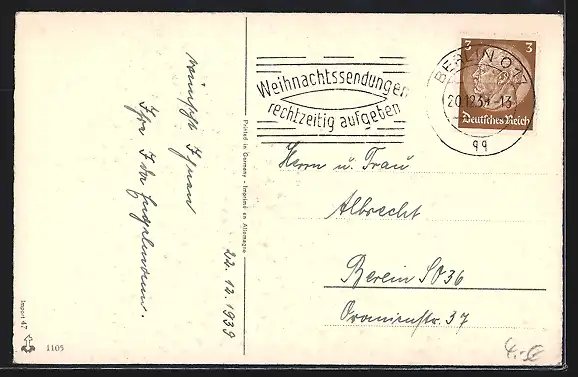 wünscht Ihnen
Ihre Ida Engelmann.
22.12.1939
Printed in Germany - Imprimé en Allemagne
Weihnachtssendungen
rechtzeitig aufgeben
BERLIN O 17
20.12.34.-13
qq
3 3
Deutsches Reich
Herrn u. Frau
Albrecht
Berlin SO 36
Oranienstr. 37
Import 47
1105